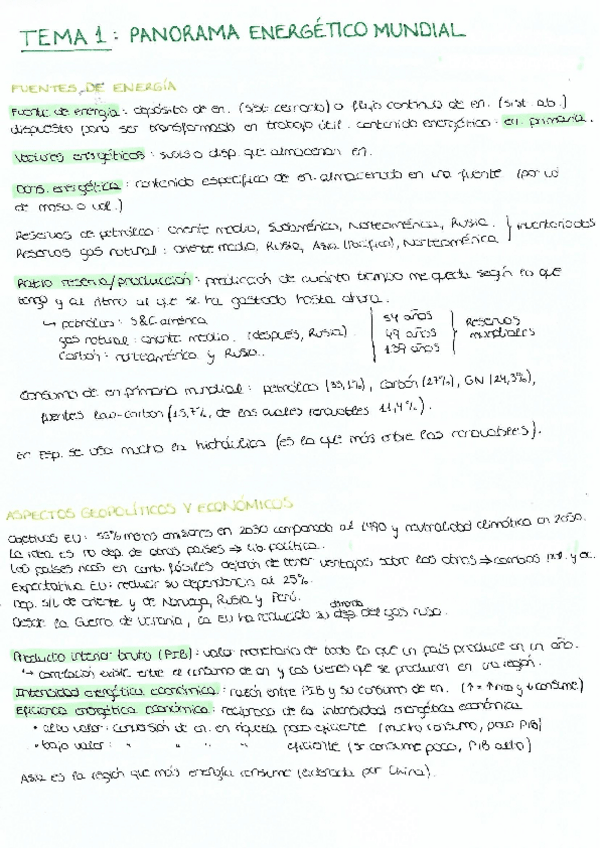 TEMA 1: PANORAMA ENERGÉTICO MUNDIAL
FUENTES DE ENERGÍA
Fuente de energía: depósito de en. (sist. cerrado) o flujo continuo de en. (sist. ab.)
dispuesto para ser transformado en trabajo útil. contenido energético: en. primaria.
Vectores energéticos: sust. o disp. que almacenan en.
Dens. energética: contenido específico de en. almacenado en una fuente (por ud
de masa o vol.)
Reservas de petróleo: oriente medio, Sudamérica, Norteamérica, Rusia. } inventariados
Reservas gas natural: oriente medio, Rusia, Asia (Pacífico), Norteamérica
Ratio reserva/producción: predicción de cuánto tiempo me queda según lo que
tengo y al ritmo al que se ha gastado hasta ahora.
↳ petróleo: S&C américa | 54 años
gas natural: oriente medio. (después, Rusia) | 49 años } Reservas mundiales
carbón: norteamérica y Rusia.. | 139 años
Consumo de en. primaria mundial: petróleo (33,1%), carbón (27%), GN (24,3%),
fuentes low-carbon (15,7%, de las cuales renovables 11,4%).
en Esp. se usa mucho la hidráulica (es la que más entre las renovables).
ASPECTOS GEOPOLÍTICOS Y ECONÓMICOS
Objetivos EU: 55% menos emisiones en 2030 comparado al 1990 y neutralidad climática en 2050.
La idea es no dep. de otros países ⇒ lib. política.
Los países ricos en comb. fósiles dejarán de tener ventajas sobre los otros ⇒ cambios pol. y ec.
Expectativa EU: reducir su dependencia al 25%.
Dep. s/t de oriente y de Noruega, Rusia y Perú.
Desde la Guerra de Ucrania, la EU ha reducido su dep. del gas ruso.
Producto interior bruto (PIB): valor monetario de todo lo que un país produce en un año.
↳ correlación exist. entre el consumo de en y los bienes que se producen en una región.
Intensidad energética económica: razón entre PIB y su consumo de en. (↑ = ↑ rico y ↓ consume)
Eficiencia energética económica: recíproco de la intensidad energética económica
• alto valor: conversión de en. en riqueza poco eficiente (mucho consumo, poco PIB)
• bajo valor: " " " " eficiente (se consume poco, PIB alto)
Asia es la región que más energía consume (liderada por China).